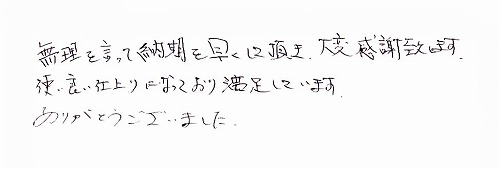 無理を言って納期を早くして頂き、大変感謝致します。
使い良い仕上りになっており満足しています。
ありがとうございました。